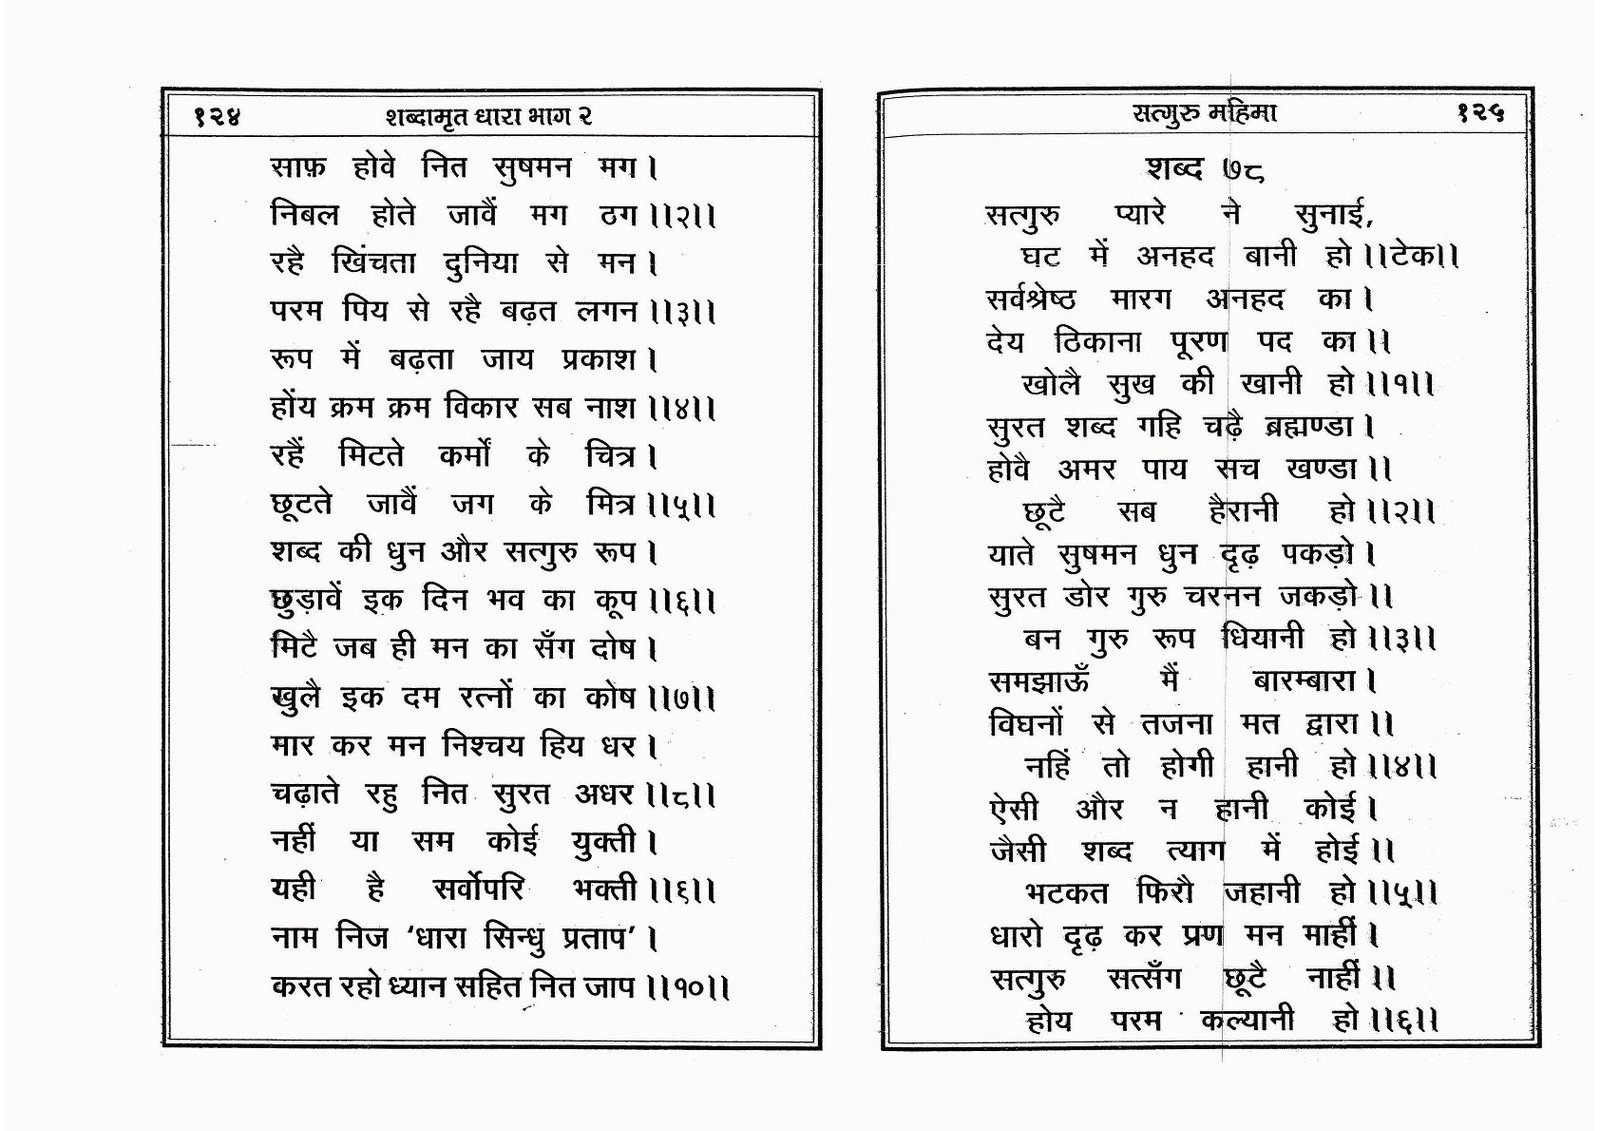 १२४ शब्दामृत धारा भाग २
साफ़ होवे नित सुषमन मग ।
निबल होते जावैं मग ठग ।।२।।
रहै खिंचता दुनिया से मन ।
परम पिय से रहै बढ़त लगन ।।३।।
रूप में बढ़ता जाय प्रकाश ।
होंय क्रम क्रम विकार सब नाश ।।४।।
रहैं मिटते कर्मों के चित्र ।
छूटते जावैं जग के मित्र ।।५।।
शब्द की धुन और सत्गुरु रूप ।
छुड़ावें इक दिन भव का कूप ।।६।।
मिटै जब ही मन का सँग दोष ।
खुलै इक दम रत्नों का कोष ।।७।।
मार कर मन निश्चय हिय धर ।
चढ़ाते रहु नित सुरत अधर ।।८।।
नहीं या सम कोई युक्ती ।
यही है सर्वोपरि भक्ती ।।६।।
नाम निज ‘धारा सिन्धु प्रताप’ ।
करत रहो ध्यान सहित नित जाप ।।१०।।
सत्गुरु महिमा १२५
शब्द ७८
सत्गुरु प्यारे ने सुनाई,
घट में अनहद बानी हो ।।टेक।।
सर्वश्रेष्ठ मारग अनहद का ।
देय ठिकाना पूरण पद का ।।
खोलै सुख की खानी हो ।।१।।
सुरत शब्द गहि चढ़ै ब्रह्मण्डा ।
होवै अमर पाय सच खण्डा ।।
छूटै सब हैरानी हो ।।२।।
याते सुषमन धुन दृढ़ पकड़ो ।
सुरत डोर गुरु चरनन जकड़ो ।।
बन गुरु रूप धियानी हो ।।३।।
समझाऊँ मैं बारम्बारा ।
विघनों से तजना मत द्वारा ।।
नहिं तो होगी हानी हो ।।४।।
ऐसी और न हानी कोई ।
जैसी शब्द त्याग में होई ।।
भटकत फिरौ जहानी हो ।।५।।
धारो दृढ़ कर प्रण मन माहीं ।
सत्गुरु सत्सँग छूटै नाहीं ।।
होय परम कल्यानी हो ।।६।।